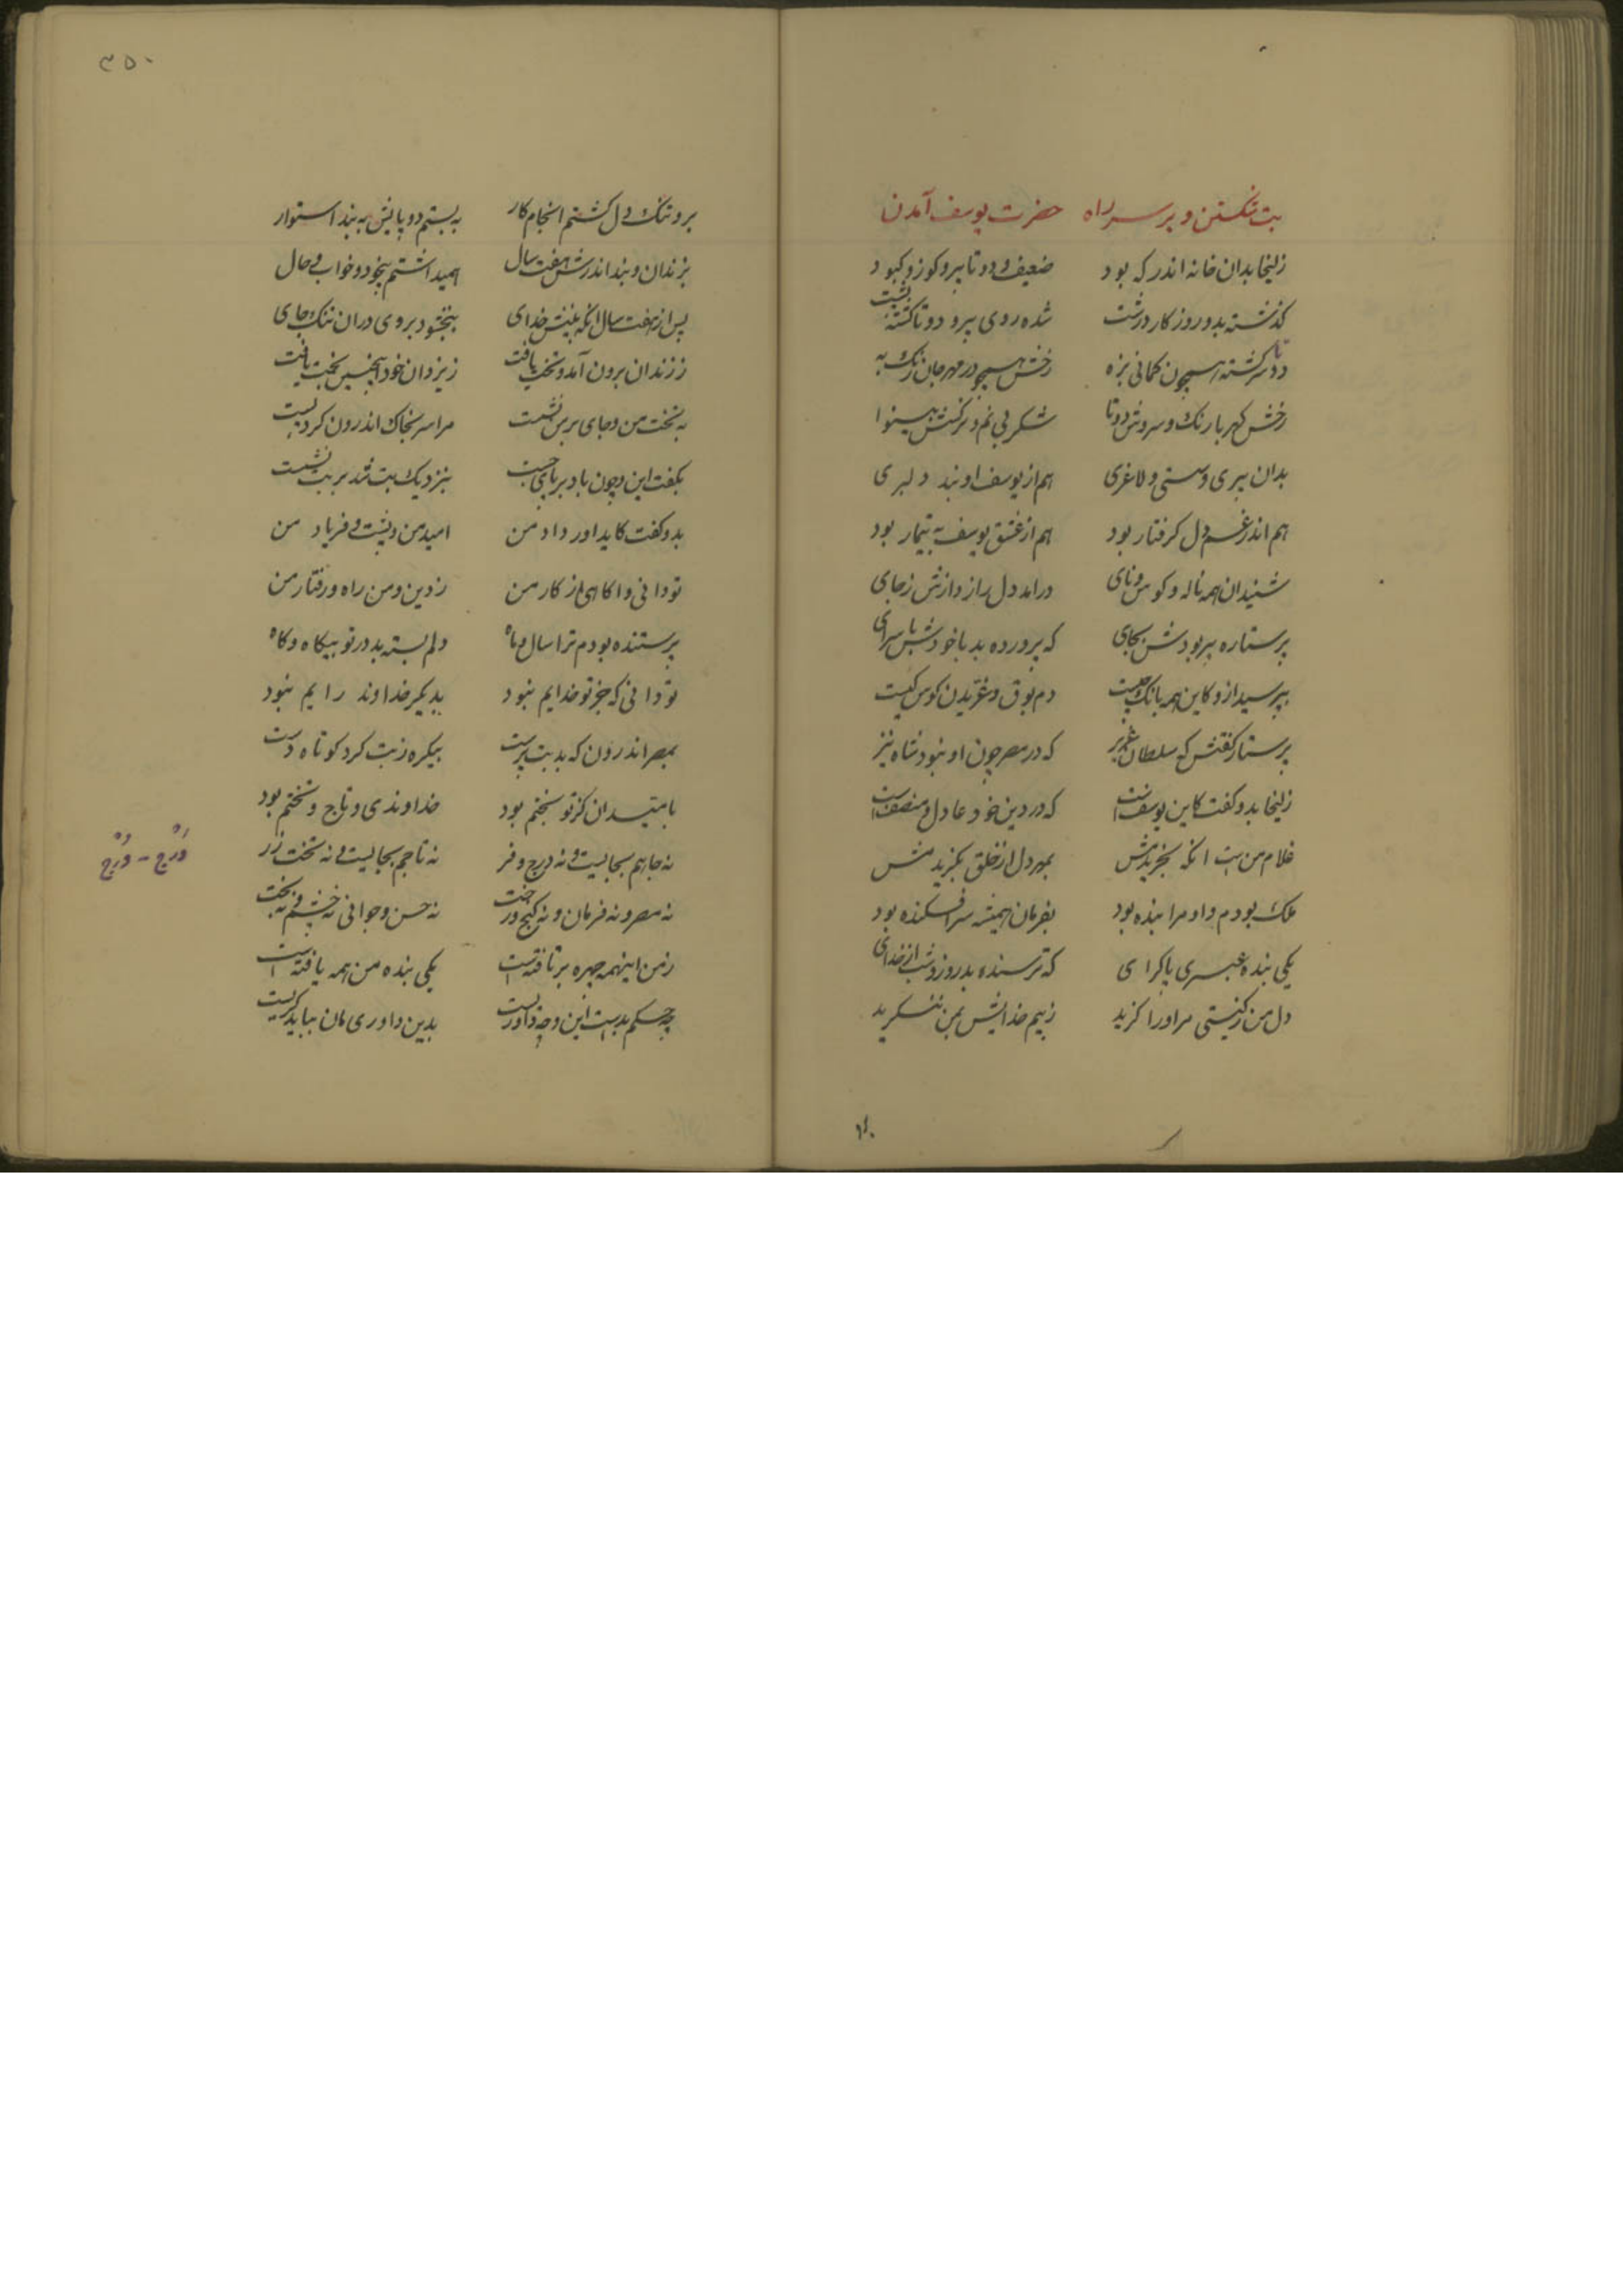 بت شکستن و بر سر راه حضرت یوسف آمدن
زلیخا بدان خانه اندر که بود ضعیف و دوتا پیر و کوز و کبود
گذشته بدو روزکار درشت شده روی پیر و دوتا کشته پشت
دوتا کشته همچون کمانی بزه رخش همچو در مهرجان رنک به
رخش کهربا رنک و سروش دوتا شکر بی نم و نرکسش بینوا
بدان پیری و سستی و لاغری هم از یوسف او بد دلبری
هم اندر غم دل کرفتار بود هم از عشق یوسف به تیمار بود
شنیدان همه ناله و کوس و نای درامد دل راز دارش زجای
پرستاره پیر بودش بجای که پرورده بد با خودش با سرای
بپرسید ازو کاین همه بانک چیست دم بوق و غریدن کوس کیست
پرستار کفتش که سلطان عزیز که در مصر چون او نبود شاه نیز
زلیخا بدو کفت کاین یوسف است که در دین خود عادل و منصف است
غلام من است انکه بخریدمش بمهر دل از خلق بکزیدمش
ملک بودم و او مرا بنده بود بفرمان همیشه سرافکنده بود
یکی بنده عبری پاکرای که ترسنده بد روز و شب از خدای
دل من زکیتی مر او را کزید زبیم خدایش بمن ننکرید
۳۵۰
برو تنک دل کشتم انجام کار به بستم دو پایش به بند استوار
بزندان و بند اندرش هفت سال همیداشتم بیخود و خواب و حال
پس از هفت سال انکه یکیتش خدای ببخشود بروی دران تنک جای
ززندان برون آمد و تخت یافت زیزدان خود اینچنین بخت یافت
به تخت من و جای من بر نشست مرا سر بخاک اندرون کرد پست
بکفت این و چون باد بر پای جست بنزدیک بت شد بر بت نشست
بدو کفت کای داور داد من امید من و پشت و فریاد من
تو دانی و اکاهی از کار من زدین و من راه و رفتار من
پرستنده بودم ترا سال و ماه دلم بسته بد در تو بیکاه و کاه
تو دانی که جز تو خدایم نبود بدیکر خداوند رایم نبود
بمصر اندرون که بد بت پرست بیکره زبت کرد کوتاه دست
بامیدان کز تو بختم بود خداوندی و تاج و تختم بود
نه جاهم بجایست و نه درج و فر نه تاجم بجایست و نه تخت زر
نه مصر و نه فرمان و نه کنج و رخت نه حسن و جوانی نه چشم و نه بخت
زمن اینهمه چهره برتافتست یکی بنده من همه یافته است
چه حکم بدست این و چه داوریست بدین داوری مان بباید کریست
دَرْج - دُرْج